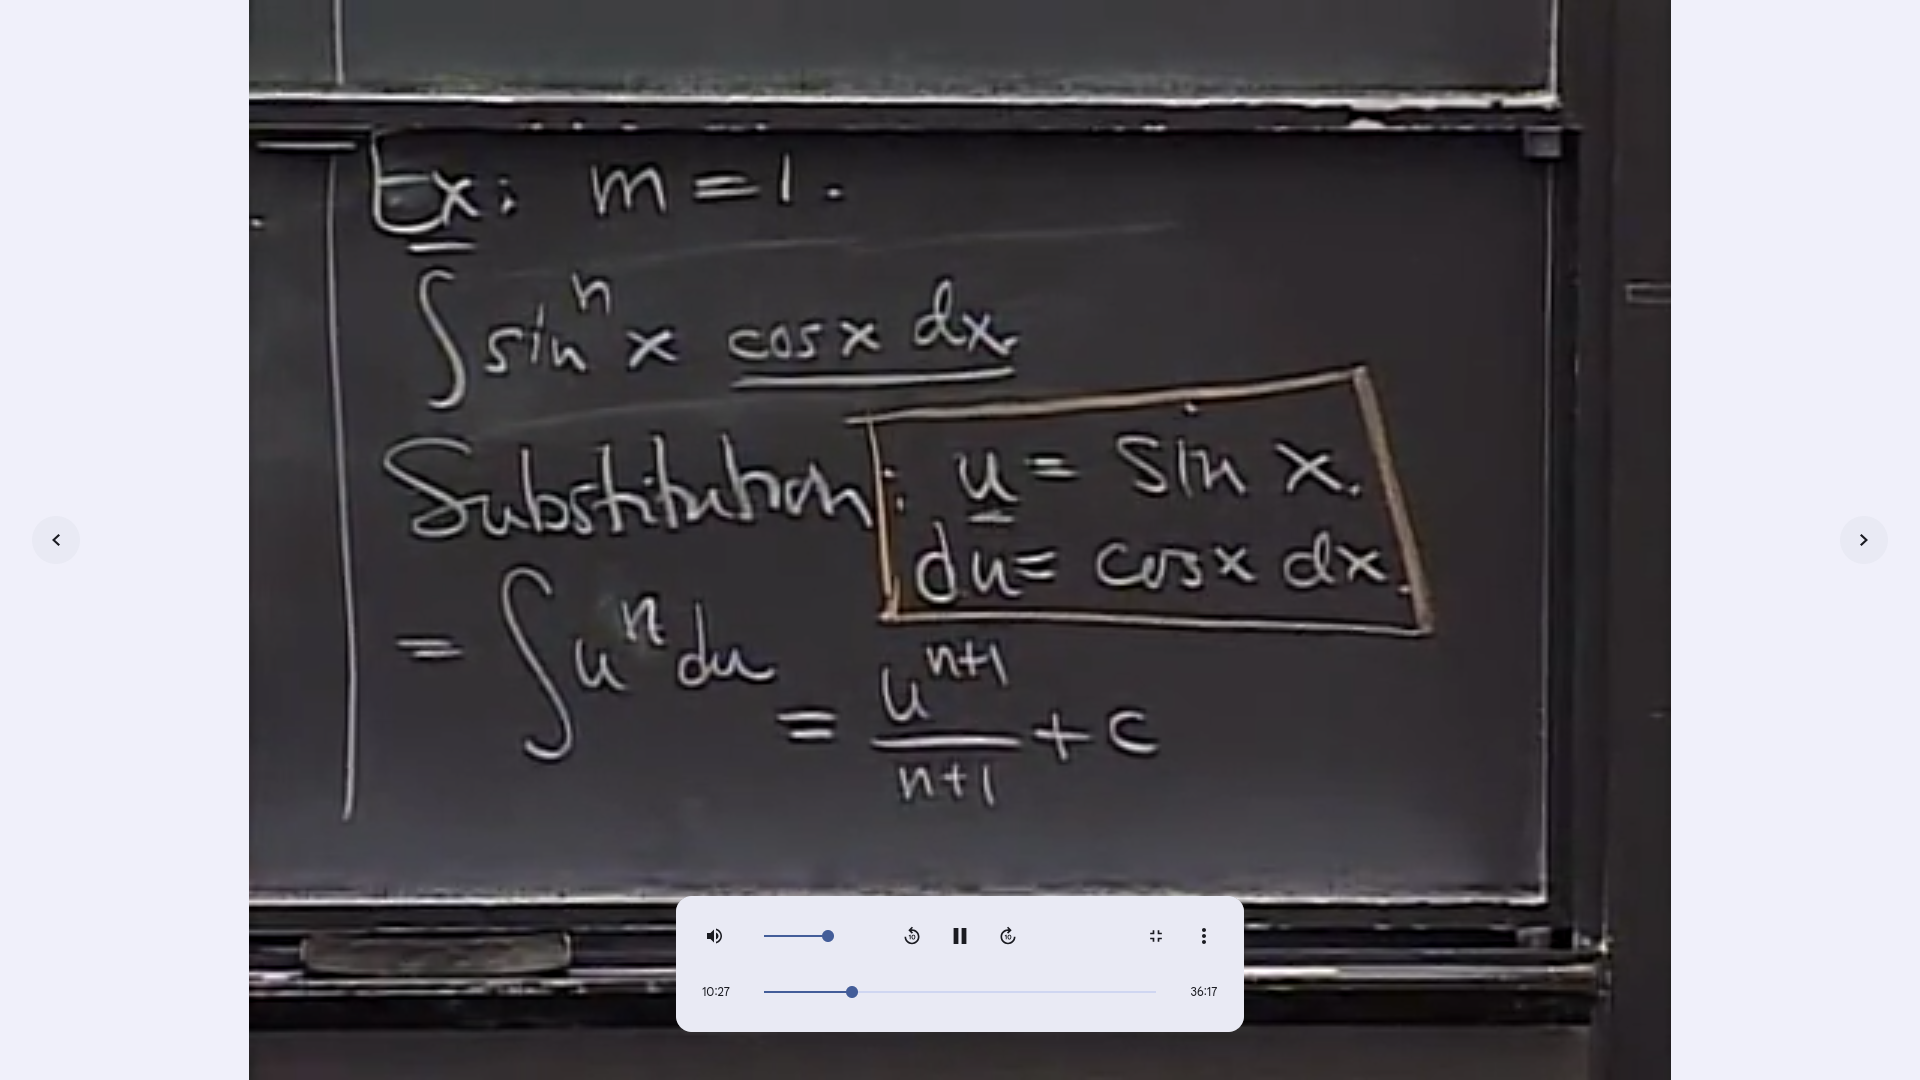 Ex: m = 1.
∫ sinⁿ x cos x dx
Substitution: u = sin x.
du = cos x dx.
= ∫ uⁿ du
= uⁿ⁺¹/n+1 + c
10
10
10:27
36:17